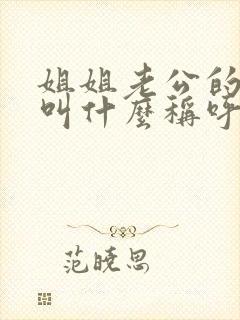 姐姐老公的
叫什麼稱呼
范曉思